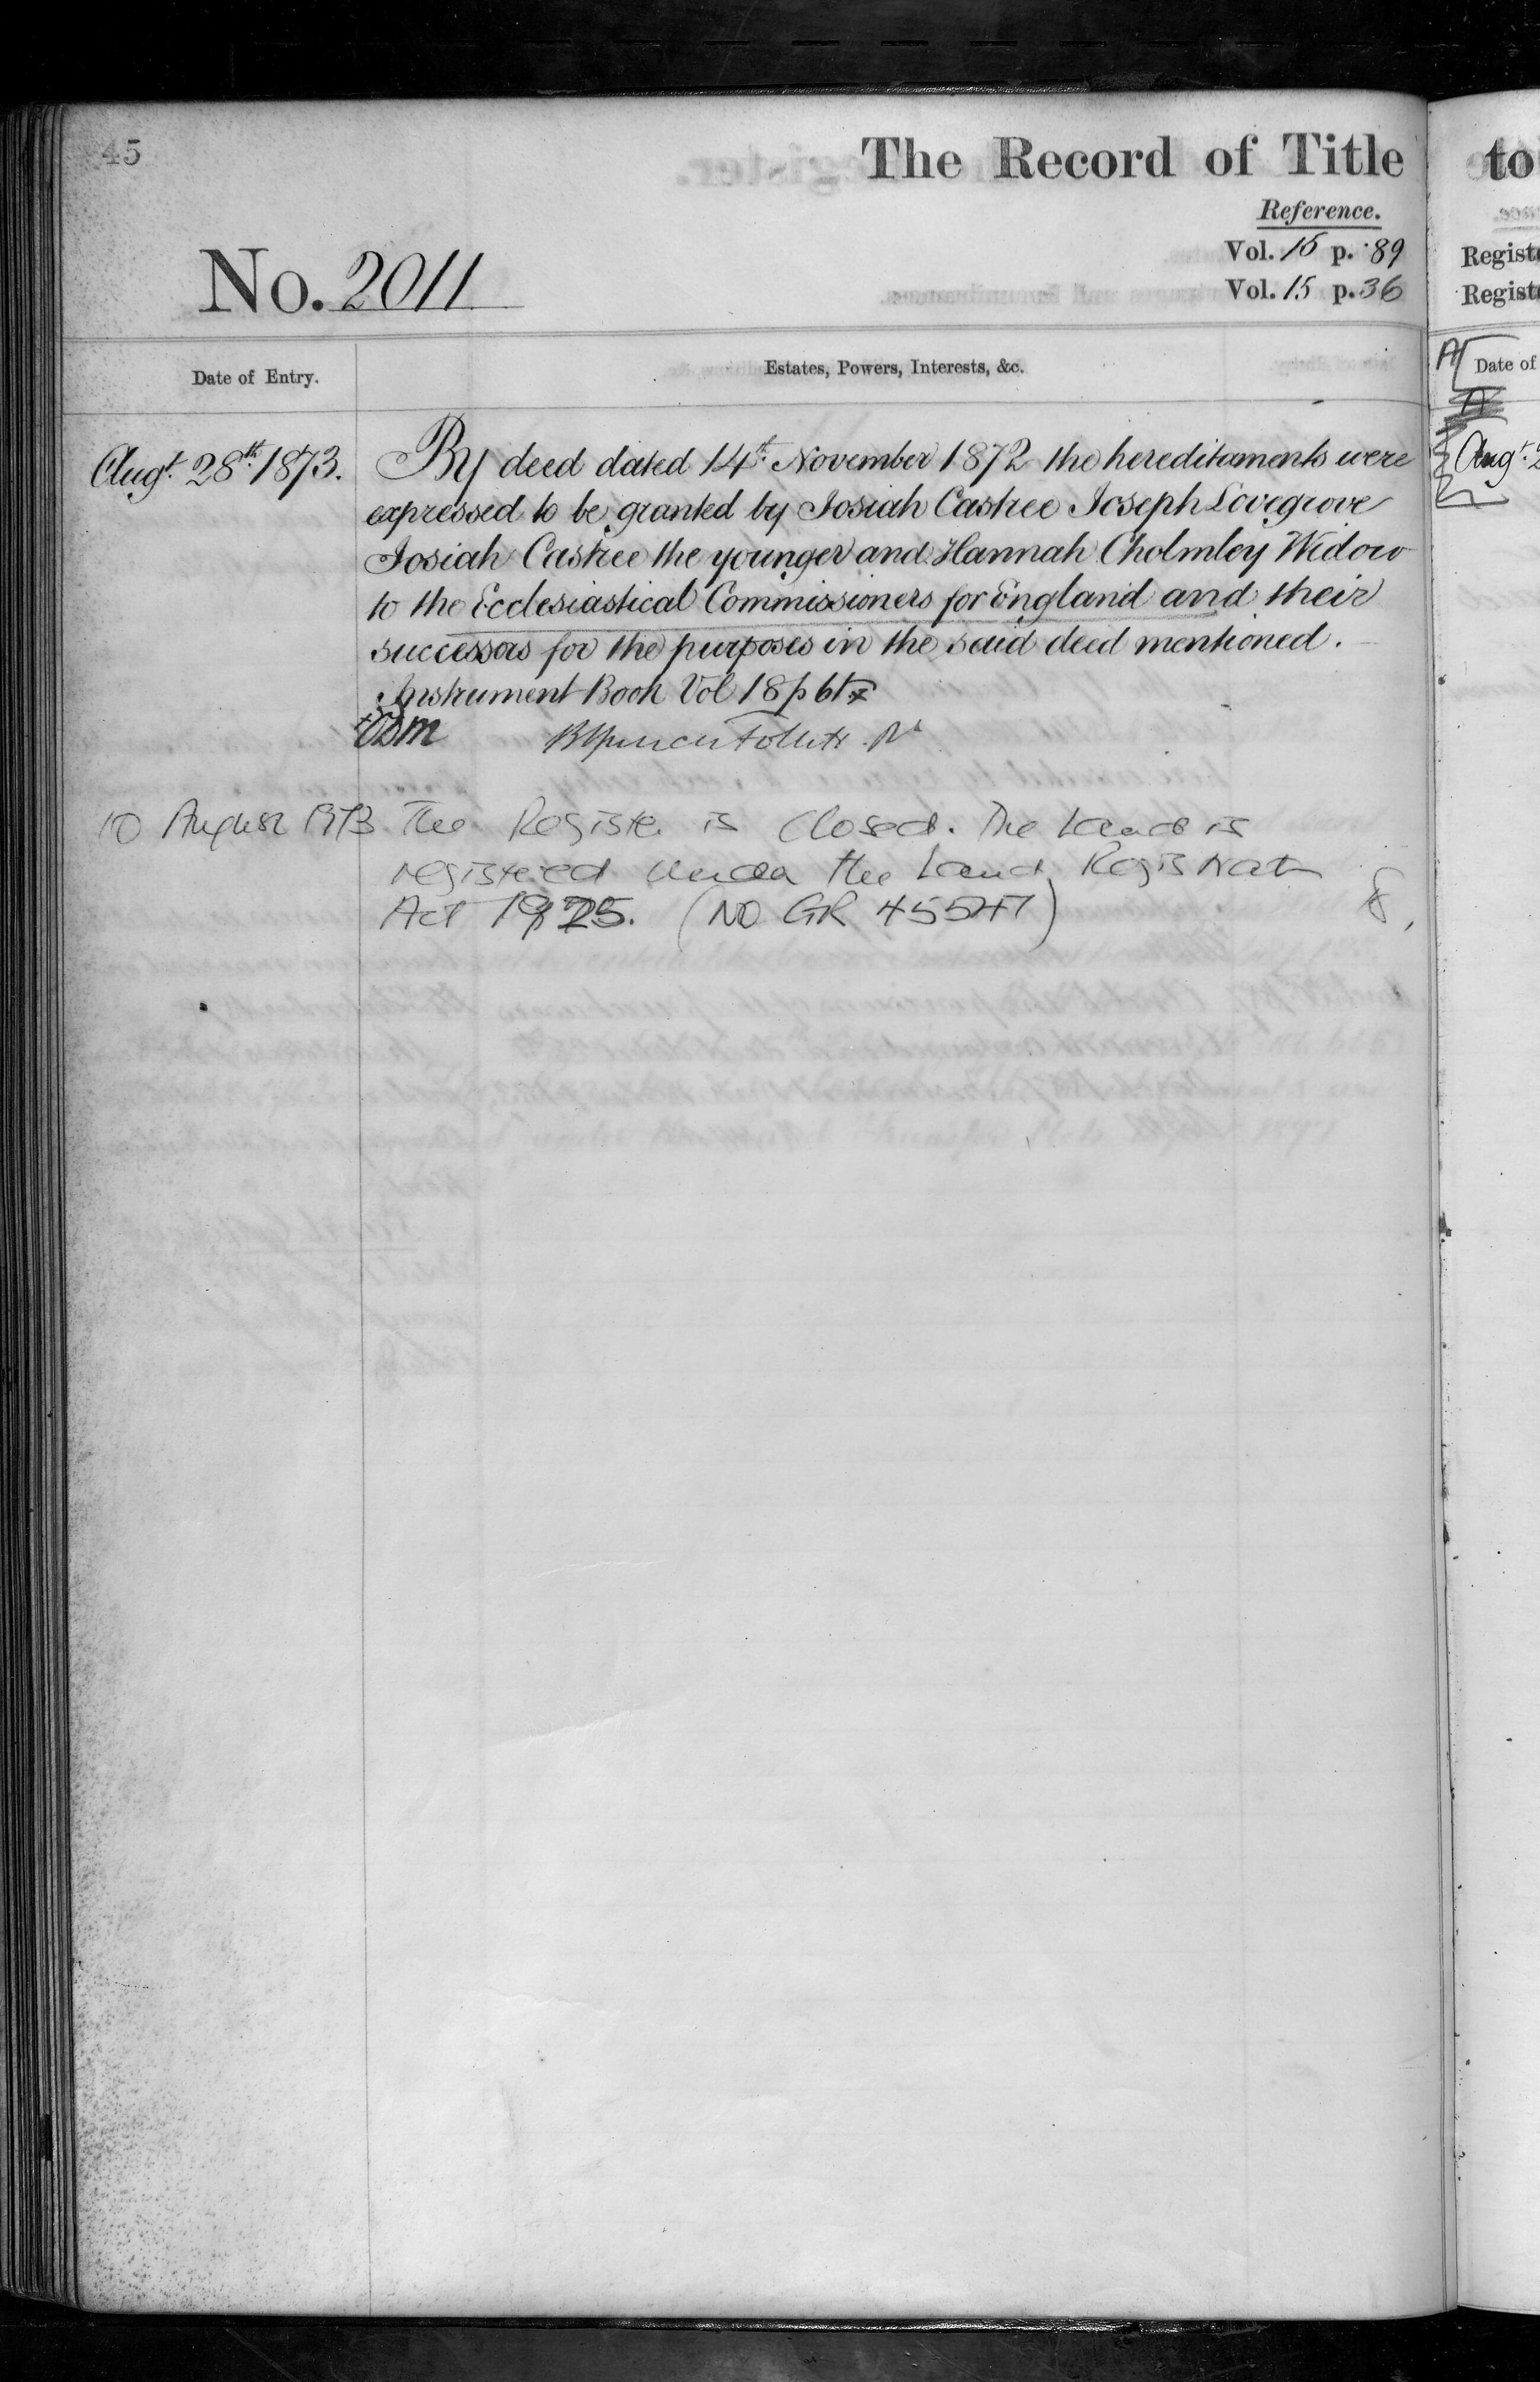 45
The Record of Title
Reference.
No. 2011
Vol. 15 p. 89
Vol. 15 p. 36
Date of Entry.
Estates, Powers, Interests, &c.
Augt. 28th. 1873.
By deed dated 14th. November 1872 the hereditaments were
expressed to be granted by Josiah Castree Joseph Lovegrove
Josiah Castree the younger and Hannah Cholmley Widow
to the Ecclesiastical Commissioners for England and their
successors for the purposes in the said deed mentioned.
Instrument Book Vol 18 p
10 August 1973 The Register is Closed. The Land is
registered under the Land Registration
Act 1925. (NO GR 45547)
to
Regist
Regist
Date of
Augt. 2